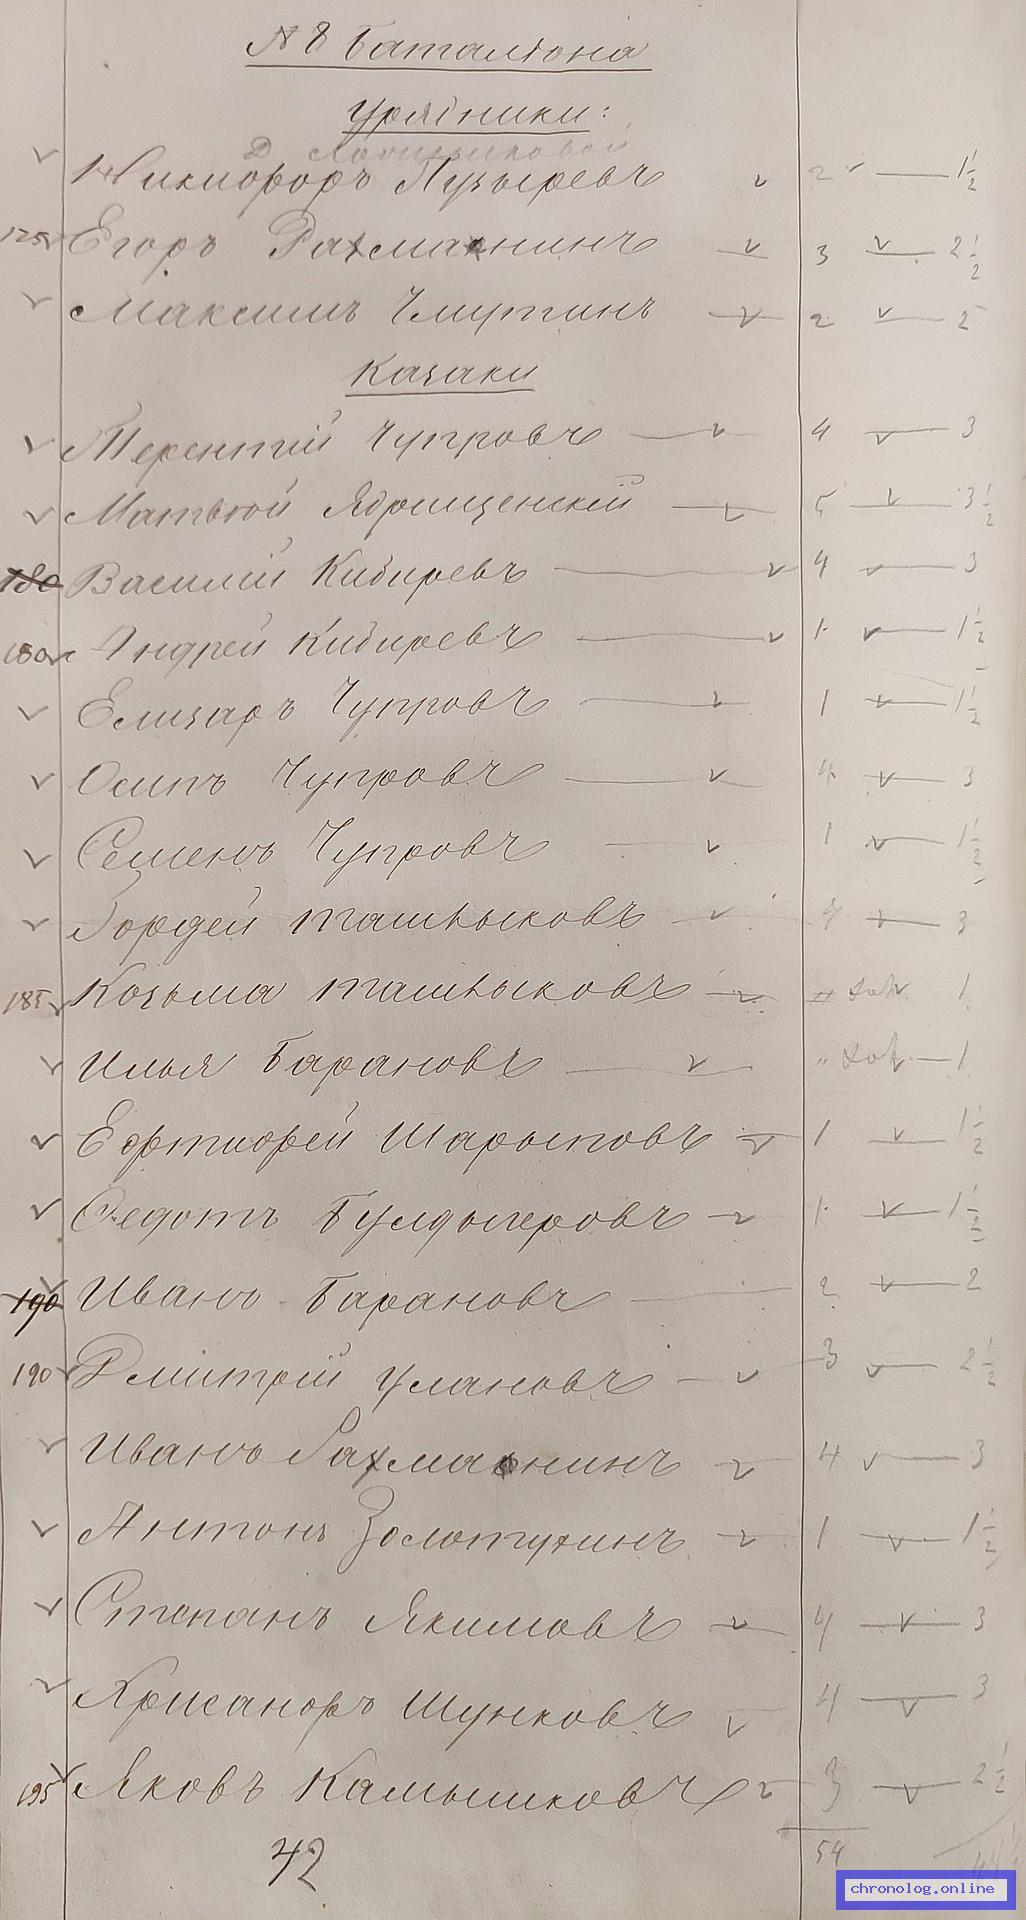 N 8 Баталiона
Урядники:
Никифоръ Пузыревъ 2 1 1/2
125 Егоръ Рахманинъ 3 2 1/2
Максимъ Чмутинъ 2 2
Казаки
Терентiй Чупровъ 4 3
Матвѣй Ядрищенскiй 5 3 1/2
180 Василiй Кибиревъ 4 3
180 Андрей Кибиревъ 1 1 1/2
Елизаръ Чупровъ 1 1 1/2
Осипъ Чупровъ 4 3
Семенъ Чупровъ 1 1 1/2
Гордей Ташлыковъ 4 3
185 Козьма Ташлыковъ " 1
Илья Барановъ " 1
Шарыповъ 1 1 1/2
Федотъ Булдыгеровъ 1 1 1/2
190 Иванъ Барановъ 2 2
190 Дмитрiй Улановъ 3 2 1/2
Иванъ Рахманинъ 4 3
Антонъ Золотухинъ 1 1 1/2
Степанъ Якимовъ 4 3
Хрисанфъ Шунковъ 4 3
195 Яковъ Камышковъ 3 2 1/2
42 54
chronolog.online